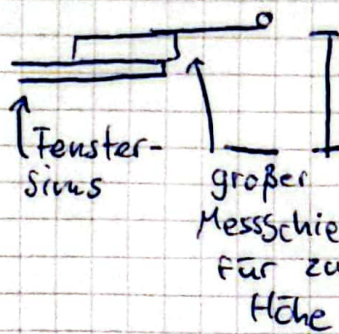 Fenster-
sims
großer
Messschie
für zu
Höhe